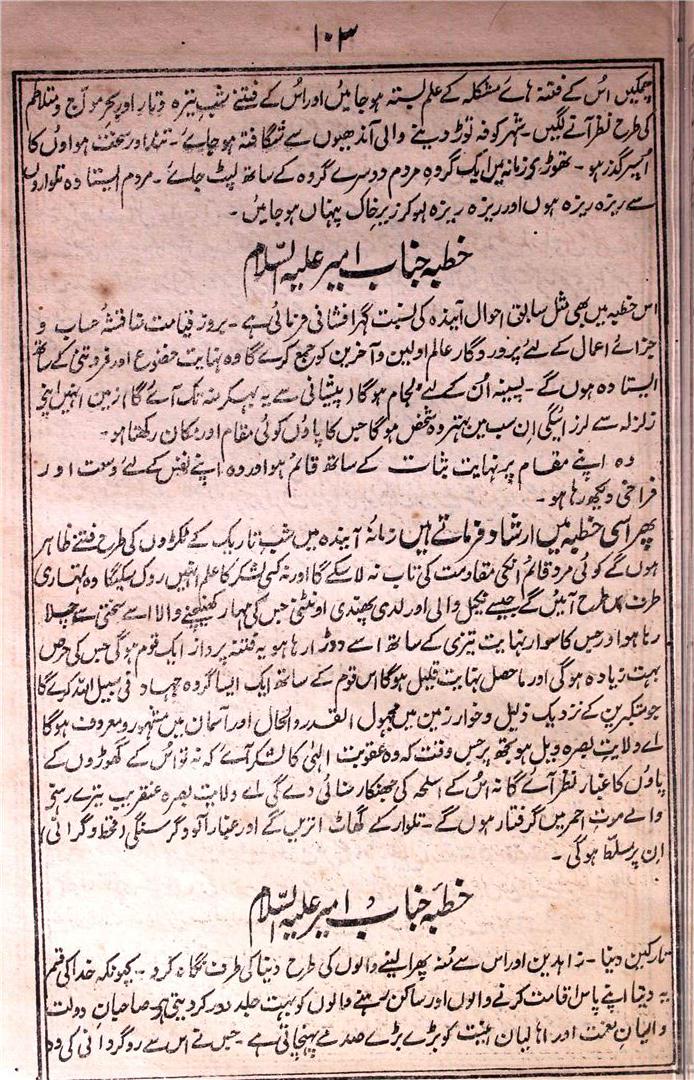 ۱۰۳
چمکیں اُس کے فتنہ ہائے مشکلہ کے علم بستہ ہو جائیں اور اُس کے فتنے شب تیرہ و تار اور بحر مواج و متلاطم
کی طرح نظر آنے لگیں۔ شہر کوفہ توڑ دینے والی آندھیوں سے شگافتہ ہو جائے۔ تند اور سخت ہواؤں کا
اُسپر گذر ہو۔ تھوڑی زمانہ میں ایک گروہ مردم دوسرے گروہ کے ساتھ لپٹ جائے۔ مردم ایستادہ تلواروں
سے ریزہ ریزہ ہوں اور ریزہ ریزہ ہو کر زیر خاک پنہاں ہو جائیں۔
خطبہ جناب امیر علیہ السّلام
اس خطبہ میں بھی مثل سابق احوال آیندہ کی نسبت گہر افشانی فرمائی ہے۔ بروز قیامت مناقشۂ حساب و
جزائے اعمال کے لئے پروردگار عالم اولین و آخرین کو جمع کرے گا وہ نہایت خضوع اور فروتنی کے ساتھ
ایستادہ ہوں گے۔ پسینہ اُن کے لئے لجام ہوگا (پیشانی سے یہ بہکر منہ تک آئے گا) زمین انہیں اپنے
زلزلہ سے لرزائیگی ان سب میں بہتر وہ شخص ہوگا جس کا پاؤں کوئی مقام اور مکان رکھتا ہو۔
وہ اپنے مقام پر نہایت ثبات کے ساتھ قائم ہو اور وہ اپنے نفس کے لئے وسعت اور
فراخی دیکھ رہا ہو۔
پھر اسی خطبہ میں ارشاد فرماتے ہیں زمانۂ آیندہ میں شب تاریک کے ٹکڑوں کی طرح فتنے ظاہر
ہوں گے کوئی مرد قائم انکی مقاومت کی تاب نہ لاسکے گا اور نہ کسی لشکر کا علم انہیں روک سکیگا وہ تمہاری
طرف اس طرح آئیں گے جیسے نکیل والی اور لدی پھندی اونٹنی جس کی مہار کھینچنے والا اسے سختی سے چلا
رہا ہو اور جس کا سوار نہایت تیزی کے ساتھ اسے دوڑا رہا ہو یہ فتنہ پرداز ایک قوم ہوگی جس کی حرص
بہت زیادہ ہوگی اور ماحصل نہایت قلیل ہوگا اس قوم کے ساتھ ایک ایسا گروہ جہاد فی سبیل اللہ کرے گا
جو متکبرین کے نزدیک ذلیل و خوار زمین میں مجہول القدر والحال اور آسمان میں مشہور و معروف ہوگا
اے ولایت بصرہ ویل ہو تجھ پر جس وقت کہ وہ عقوبت الٰہی کا لشکر آئے کہ نہ تو اُس کے گھوڑوں کے
پاؤں کا غبار نظر آئے گا نہ اُس کے اسلحہ کی جھنکار سنائی دے گی اے ولایت بصرہ عنقریب تیرے رہنے
والے موت احمر میں گرفتار ہوں گے۔ تلوار کے گھاٹ اتریں گے اور غبار آلود گرسنگی (قحط و گرانی)
ان پر مسلّط ہوگی۔
خطبہ جناب امیر علیہ السّلام
تارکین دنیا۔ زاہدین اور اس سے مُنہ پھرا لینے والوں کی طرح دنیا کی طرف نگاہ کرو۔ کیونکہ خدا کی قسم
یہ دنیا اپنے پاس اقامت کرنے والوں اور ساکن رہنے والوں کو بہت جلد دور کر دیتی ہے۔ صاحبان دولت
والیانِ نعمت اور اہالیان کو بڑے بڑے صدمے پہنچاتی ہے۔ جس نے اس سے روگردانی کی وہ